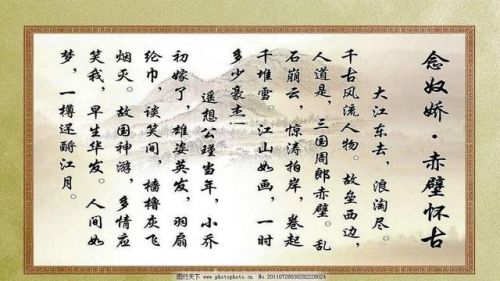 念奴娇·赤壁怀古
大江东去，浪淘尽。
千古风流人物。故垒西边，
人道是，三国周郎赤壁。乱
石崩云，惊涛拍岸，卷起
千堆雪。江山如画，一时
多少豪杰
遥想公瑾当年，小乔
初嫁了，雄姿英发，羽扇
纶巾，谈笑间，樯橹灰飞
烟灭。故国神游，多情应
笑我，早生华发。人间如
梦，一樽还酹江月。
图行天下 www.photophoto.cn No.20110728030282228024